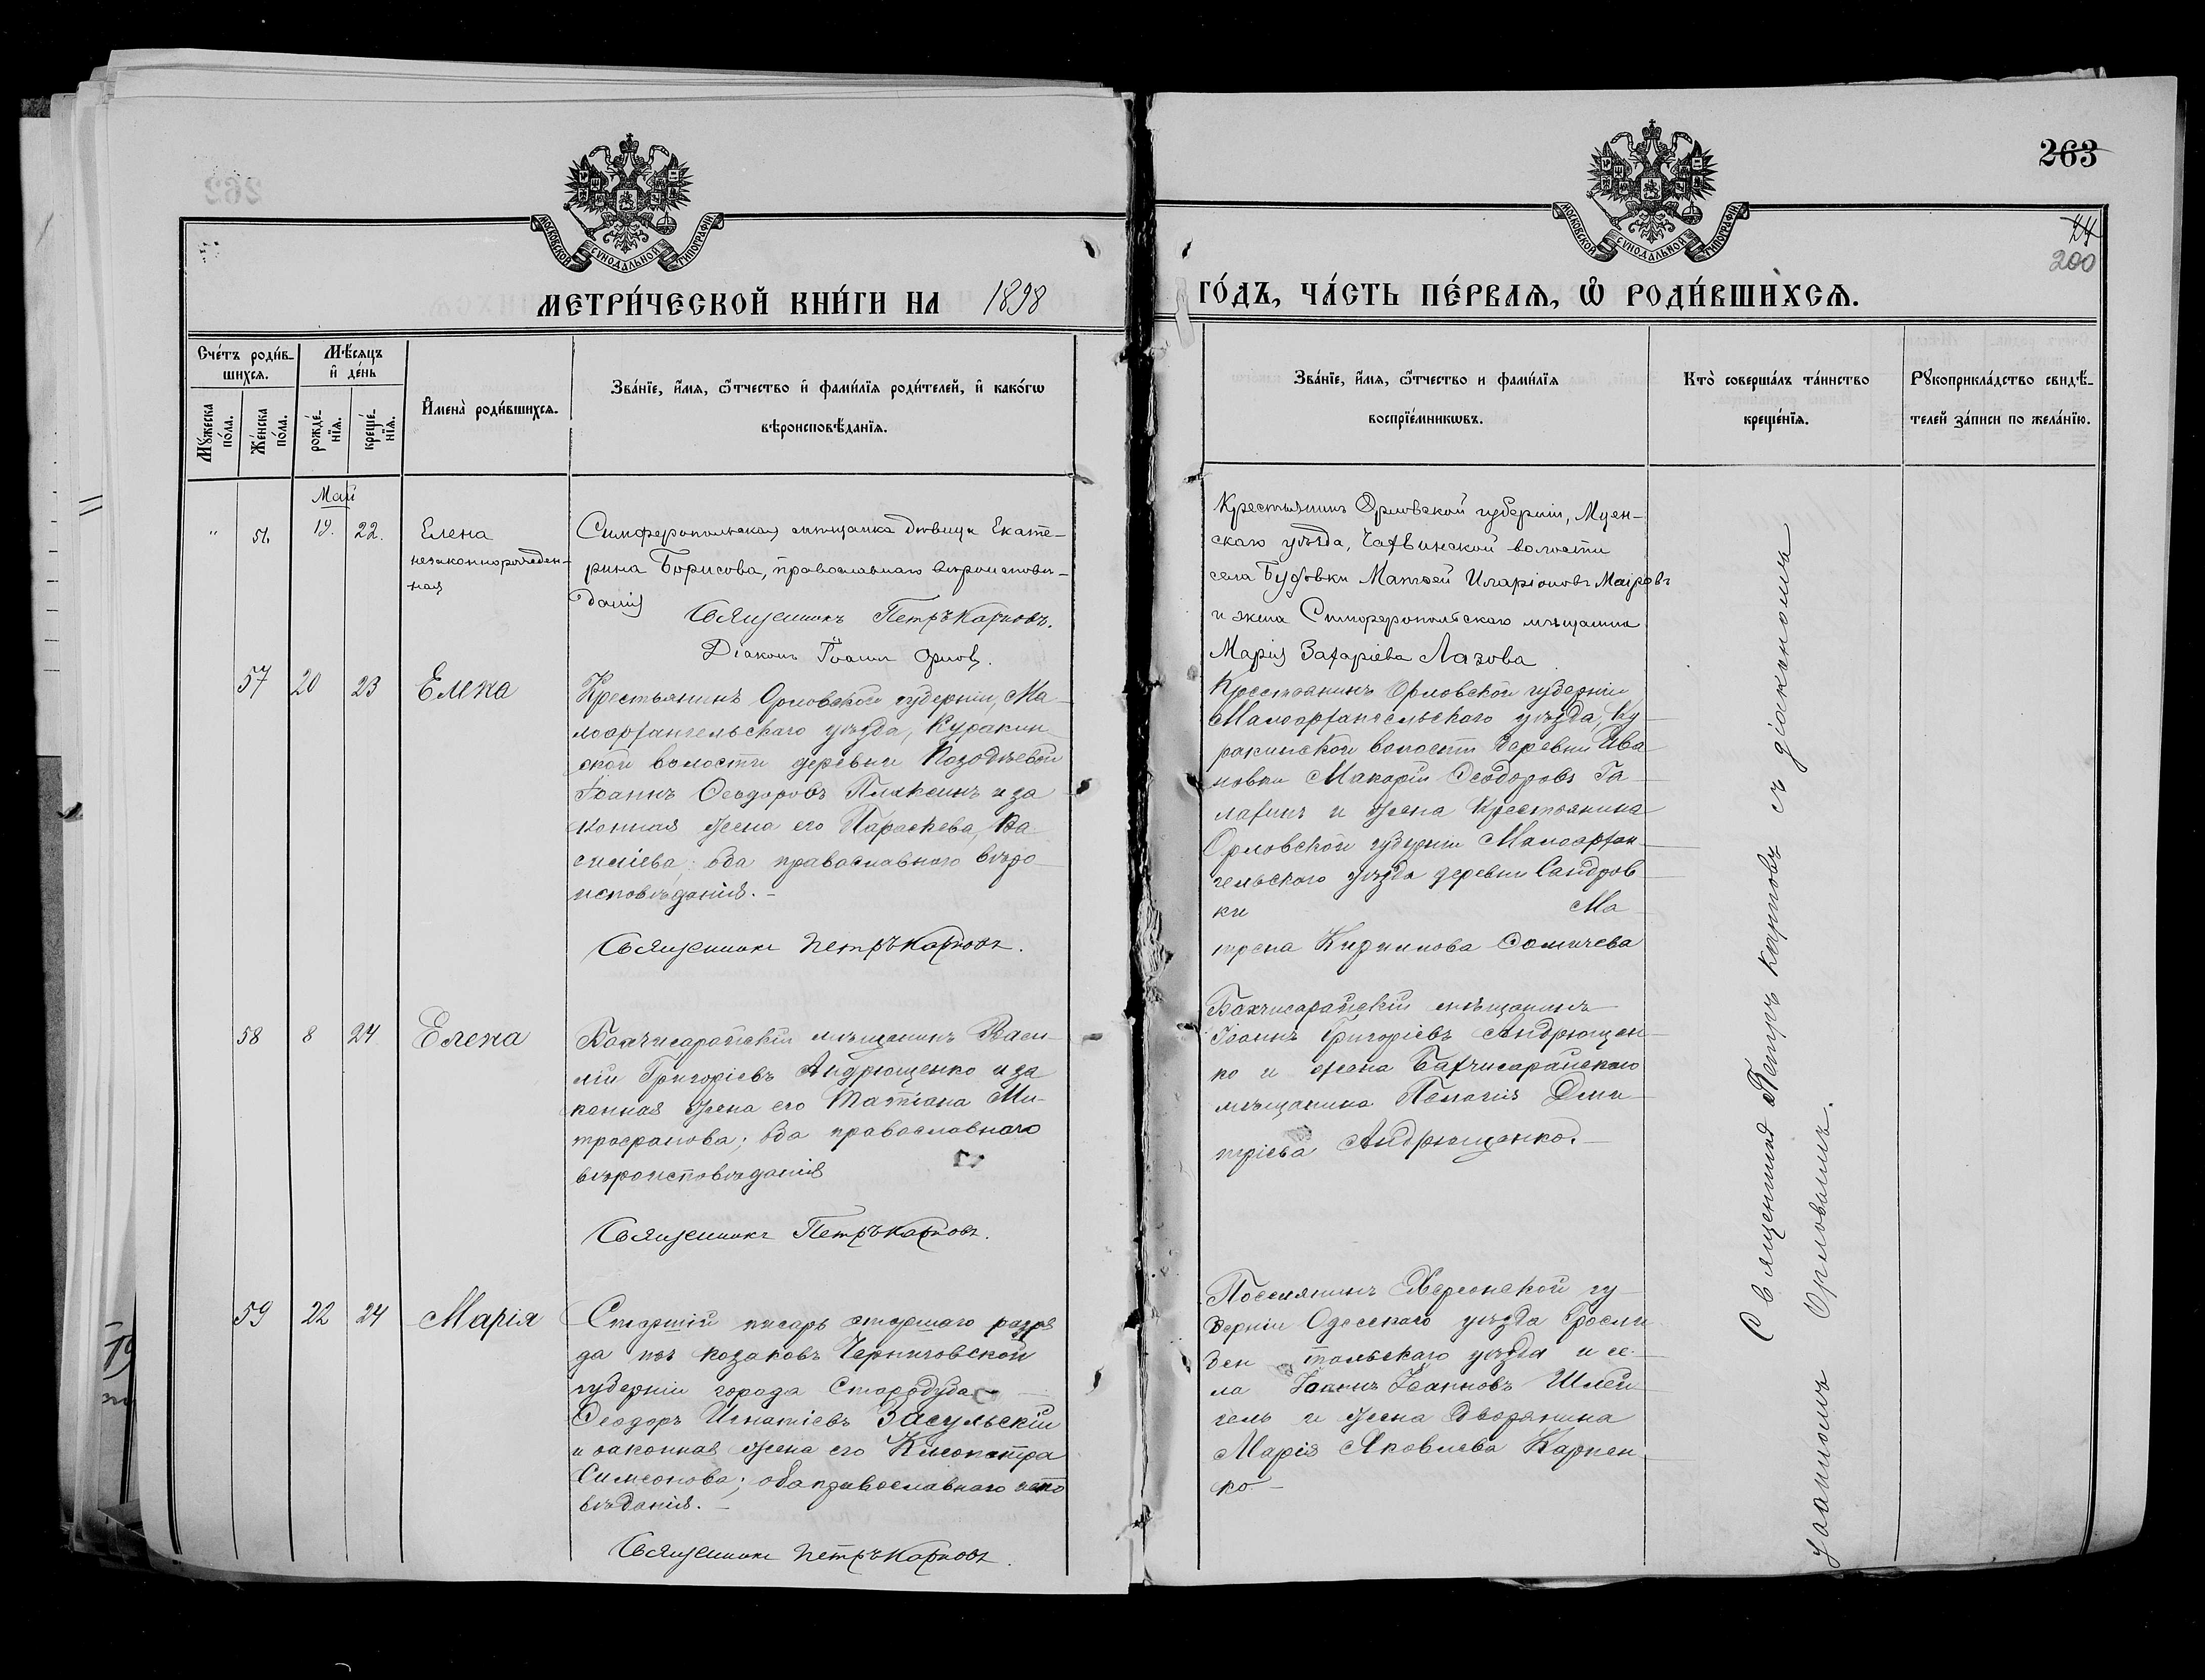 263
24
200
МОСКОВСКОЙ СѴНОДАЛЬНОЙ ТИПОГРАФІИ
МОСКОВСКОЙ СѴНОДАЛЬНОЙ ТИПОГРАФІИ
МЕТРИ́ЧЕСКОЙ КНИ́ГИ НА 1898
ГО́ДЪ, ЧА́СТЬ ПЕ́РВАѦ, Ѡ҆ РОДИ́ВШИХСѦ.
Сче́тъ роди́в-
шихсѧ.
Мꙋ́жеска
по́ла.
Же́нска
по́ла.
Мѣ́сѧцъ
и҆ де́нь
рожде́-
нїѧ.
креще́-
нїѧ.
И҆мена̀ роди́вшихсѧ.
Зва́нїе, и҆́мѧ, ѻ҆́тчество и҆ фами́лїѧ роди́телей, и҆ како́гѡ
вѣроисповѣ́данїѧ.
Зва́нїе, и҆́мѧ, ѻ҆́тчество и фами́лїѧ
воспрїе́мникѡвъ.
Кто̀ соверша́лъ та́инство
креще́нїѧ.
Рꙋкоприкла́дство свидѣ́-
телей за́писи по жела́нїю.
Май
" 56 19. 22. Елена
незаконнорожден-
ная
Симферопольская мѣщанка дѣвица Екате-
рина Борисова, православнаго вѣроисповѣ-
данія
Священникъ Петръ Карповъ.
Діаконъ Іоаннъ Орловъ.
Крестьянинъ Орловской губерніи, Мцен-
скаго уѣзда, волости
села Матѳей Иларіоновъ
и жена Симферопольскаго мѣщанина
Марія Захаріева Лазова
57 20 23 Елена
Крестьянинъ Орловской губерніи, Ма-
лоархангельскаго уѣзда, Куракин
ской волости деревни
Іоаннъ Ѳеодоровъ Плаксинъ и за
конная жена его Параскева Ва
силіева; оба православнаго вѣро
исповѣданія.-
Священникъ Петръ Карповъ.
Крестьянинъ Орловской губерніи
Малоархангельскаго уѣзда, Ку-
ракинской волости деревни Ива
новки Макарій Ѳеодоровъ Га-
лахинъ и жена крестьянина
Орловской губерніи Малоархан-
гельскаго уѣзда деревни Сандров
ки Ма-
трона Кириллова Ѳомичева
58 8 24 Елена
Бахчисарайскій мѣщанинъ Васи-
лій Григоріевъ Андрющенко и за
конная жена его Татіана Ми-
трофанова; оба православнаго
вѣроисповѣданія
Священникъ Петръ Карповъ.
Бахчисарайскій мѣщанинъ
Іоаннъ Григоріевъ Андрющен-
ко и жена Бахчисарайскаго
мѣщанина Пелагія Дми-
тріева Андрющенко.-
59 22 24 Марія
Старшій писарь старшаго разря
да изъ козаковъ Черниговской
губерніи города Стародуба
Ѳеодоръ Игнатіевъ Засульскій
и законная жена его Клеопатра
Симеонова; оба православнаго испо
вѣданія.-
Священникъ Петръ Карповъ.
Поселянинъ Херсонской гу-
берніи Одесскаго уѣзда Гросли
бен тальскаго уѣзда и се-
ла Іоаннъ Іоанновъ Шлей
гель и жена дворянина
Марія Яковлева Карпен
ко-
Священникъ Петръ Карповъ съ діакономъ
Іоанномъ Орловымъ.